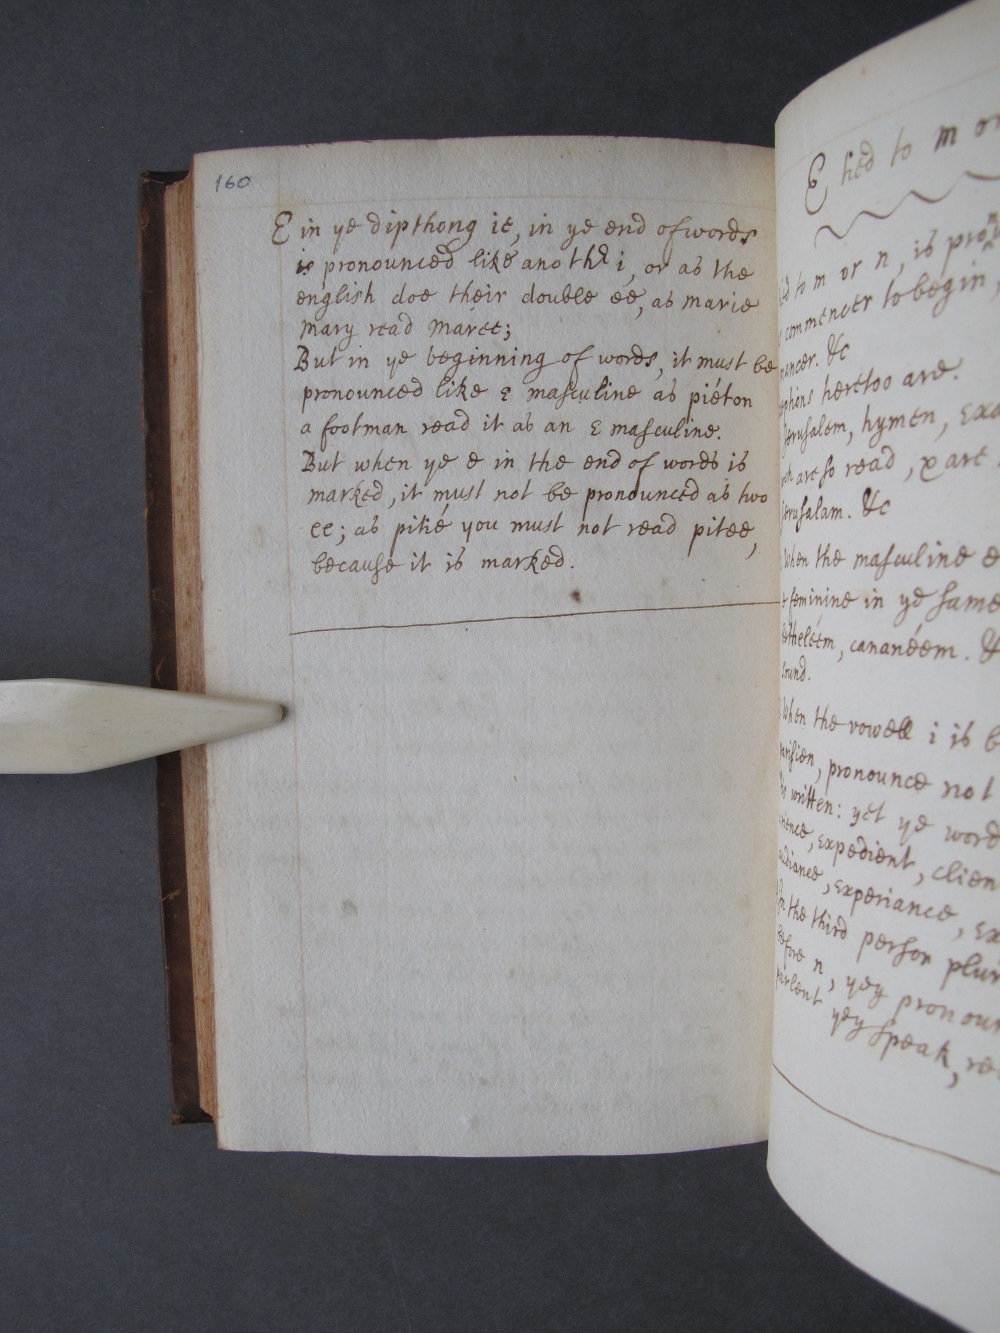 160
E in ye dipthong ie, in ye end of words
is pronounced like another i, or as the
english doe their double ee, as marie
mary read maree;
But in ye beginning of words, it must be
pronounced like e masculine as piéton
a footman read it as an e masculine.
But when ye e in the end of words is
marked, it must not be pronounced as two
ee; as pitié you must not read pitee,
because it is marked.
E tied to m or
to m or n, is
commencer to begin,
&c
hereto are.
Jerusalem, hymen,
are so read,
Jerusalam. &c
When the masculine e
feminine in ye same
cananéem.
sound.
When the vowell i is
pronounce not
written: yet ye word
expedient,
experiance,
the third person
before n, yey
parlent yey speak,